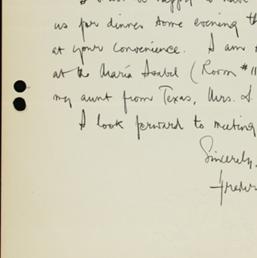 be happy to have
us for dinner some evening th
at your convenience. I am
at the María Isabel (Room #11
my aunt from Texas, Mrs. S.
I look forward to meeting
Sincerely,
Freder